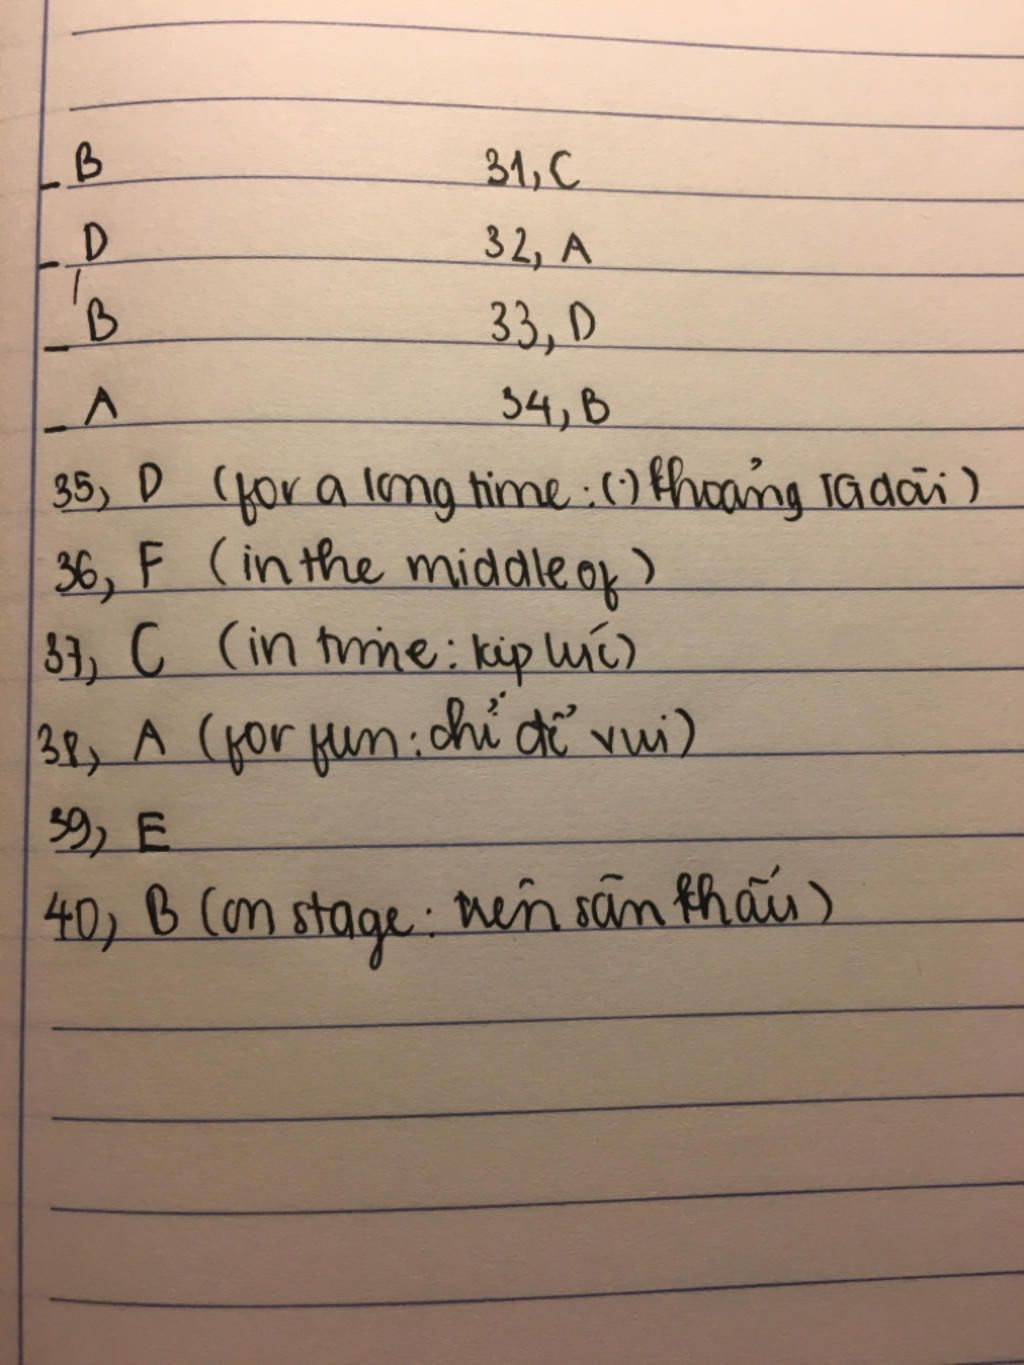 B 31, C
D 32, A
B 33, D
A 34, B
35, D (for a long time: (.) khoảng        dài)
36, F (in the middle of)
37, C (in time: kịp lúc)
38, A (for fun: chỉ để vui)
39, E
40, B (on stage: trên sân khấu)